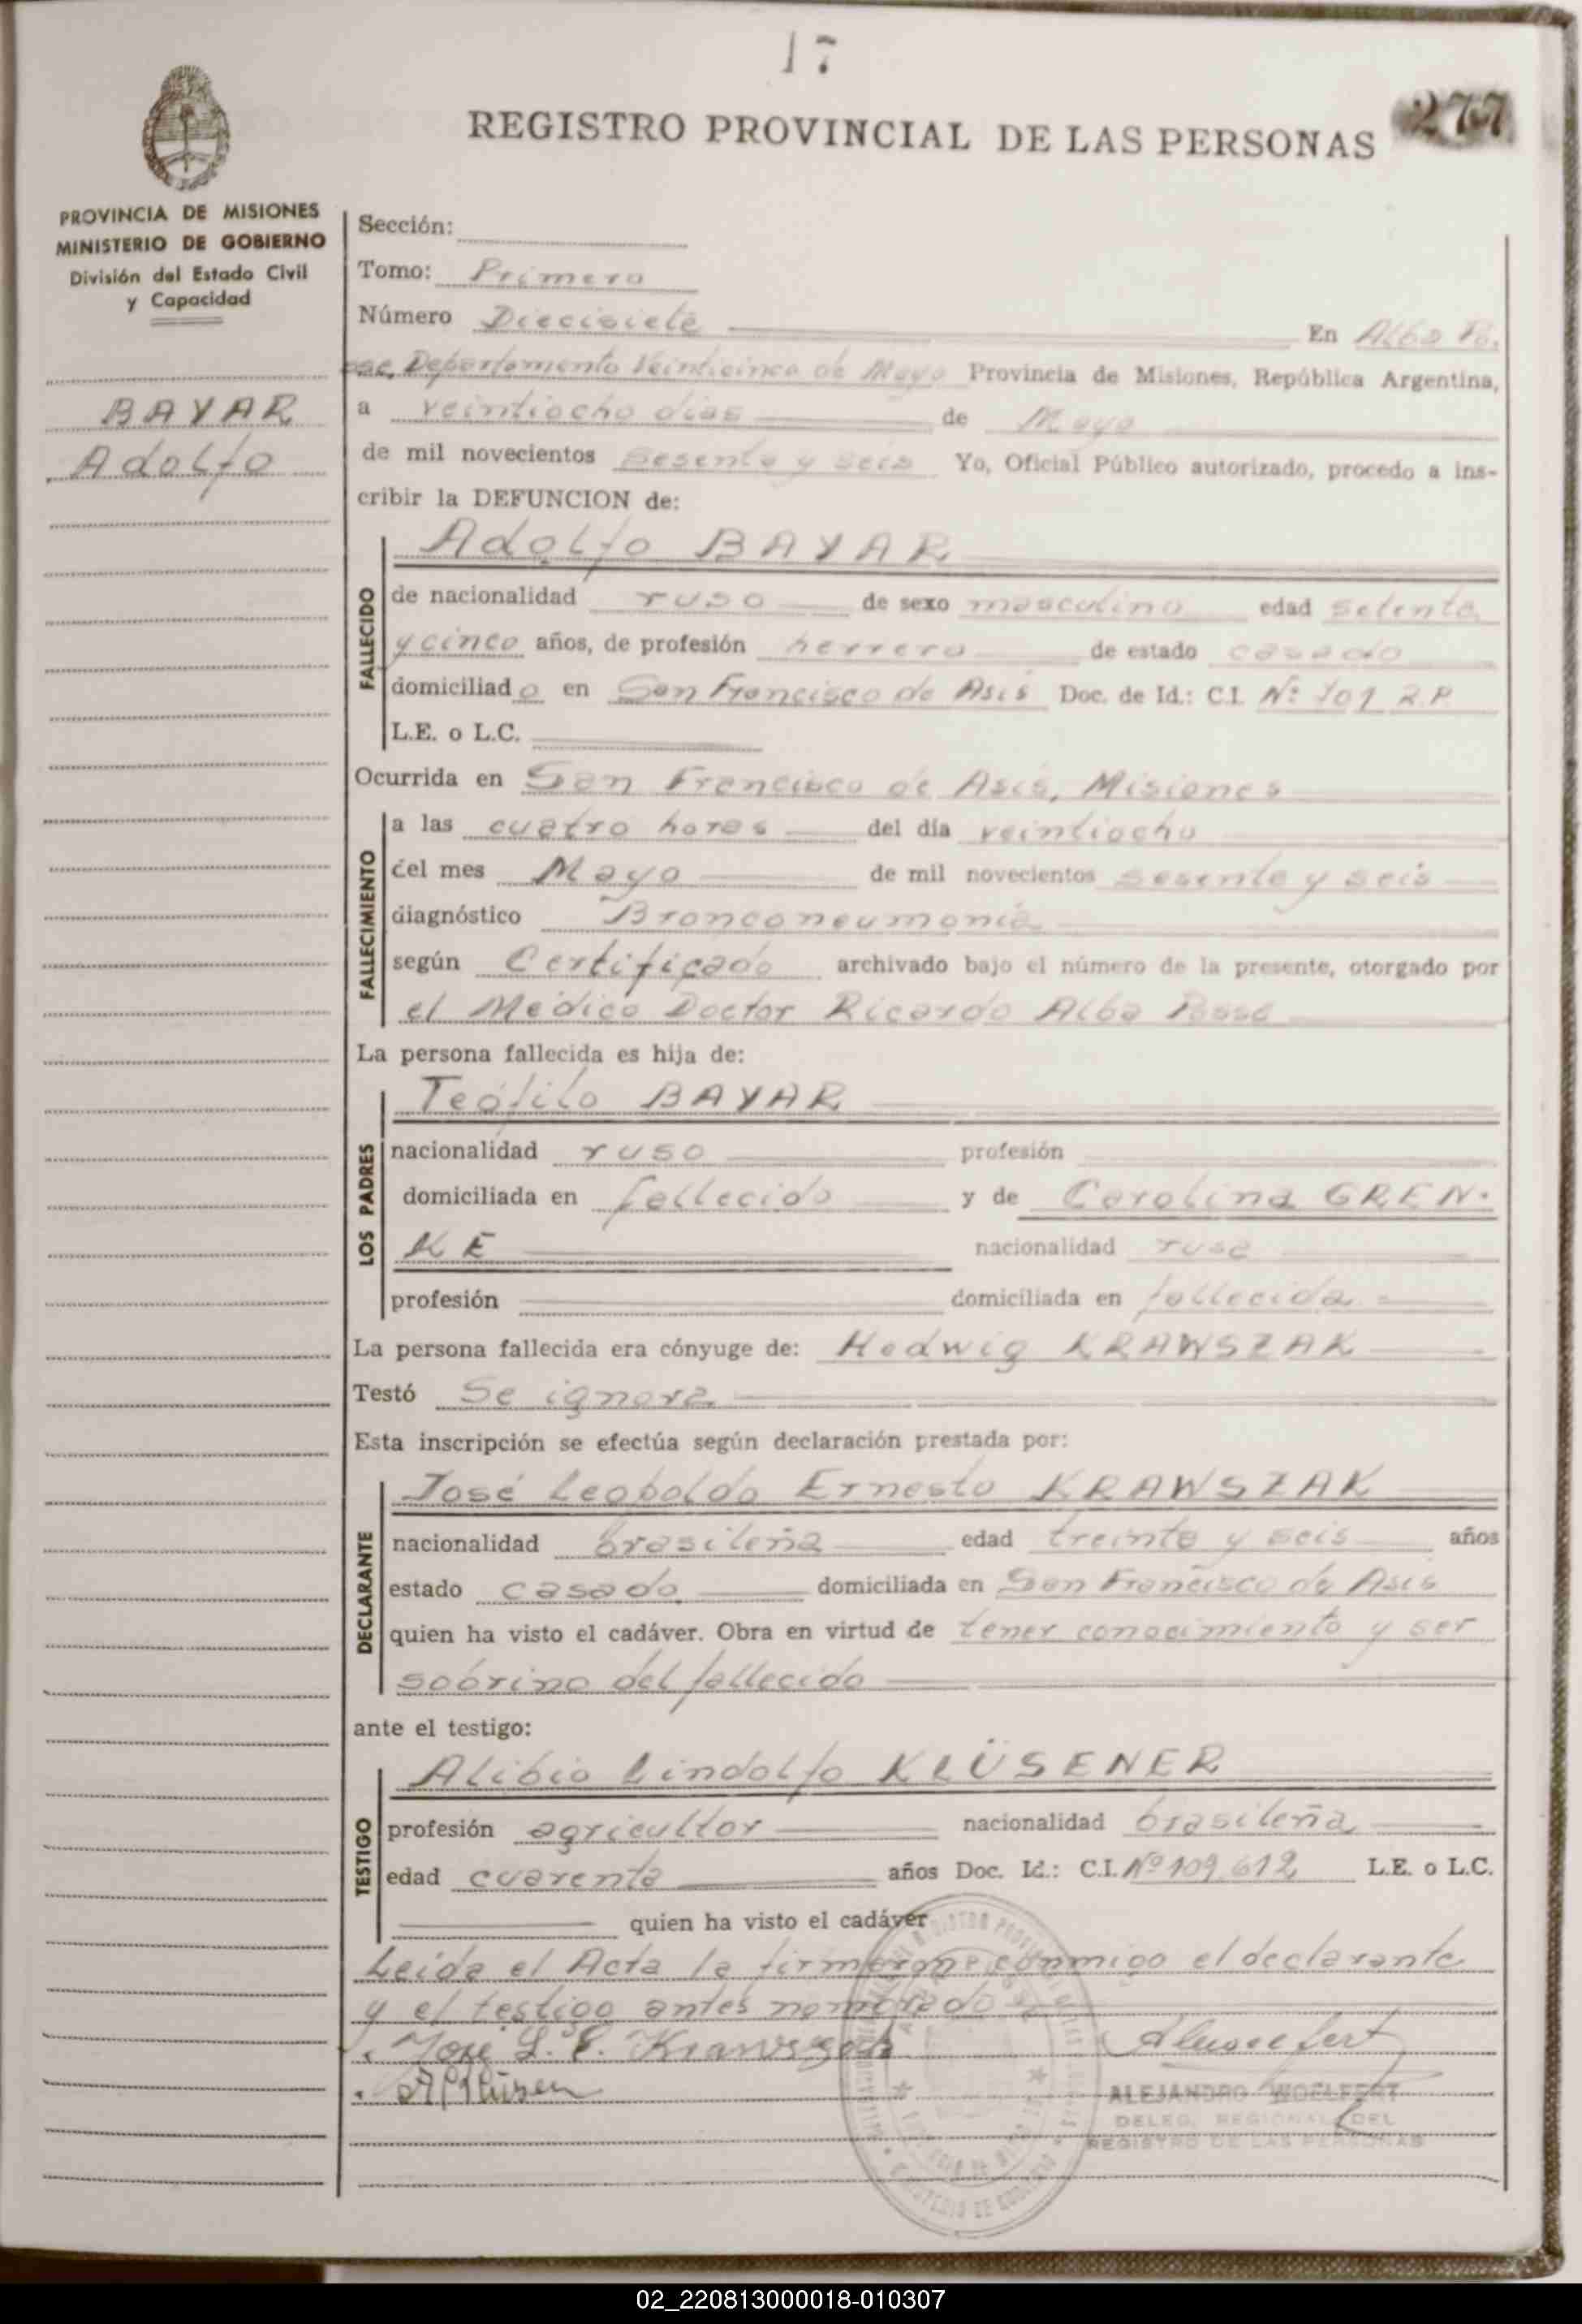 17
277
REGISTRO PROVINCIAL DE LAS PERSONAS
PROVINCIA DE MISIONES
MINISTERIO DE GOBIERNO
División del Estado Civil
y Capacidad
BAYAR
Adolfo
Sección:
Tomo: Primero
Número Diecisiete En Alba Po.
sse, Departamento Veinticinco de Mayo Provincia de Misiones, República Argentina,
a veintiocho dias de Mayo
de mil novecientos sesenta y seis Yo, Oficial Público autorizado, procedo a ins-
cribir la DEFUNCION de:
FALLECIDO
Adolfo BAYAR
de nacionalidad ruso de sexo masculino edad setenta
y cinco años, de profesión herrero de estado casado
domiciliado en San Francisco de Asis Doc. de Id.: C.I. Nº 701 R.P.
L.E. o L.C.
Ocurrida en San Francisco de Asis, Misiones
FALLECIMIENTO
a las cuatro horas del día veintiocho
del mes Mayo de mil novecientos sesenta y seis
diagnóstico Bronconeumonia
según Certificado archivado bajo el número de la presente, otorgado por
el Médico Doctor Ricardo Alba Posse
La persona fallecida es hija de:
LOS PADRES
Teófilo BAYAR
nacionalidad ruso profesión
domiciliada en fallecido y de Carolina GREN.
KE nacionalidad rusa
profesión domiciliada en fallecida
La persona fallecida era cónyuge de: Hedwig KRAWSZAK
Testó Se ignora
Esta inscripción se efectúa según declaración prestada por:
DECLARANTE
José Leopoldo Ernesto KRAWSZAK
nacionalidad brasileña edad treinta y seis años
estado casado domiciliada en San Francisco de Asis
quien ha visto el cadáver. Obra en virtud de tener conocimiento y ser
sobrino del fallecido
ante el testigo:
TESTIGO
Alibio Lindolfo KLÜSENER
profesión agricultor nacionalidad brasileña
edad cuarenta años Doc. Id.: C.I. Nº 109.612 L.E. o L.C.
quien ha visto el cadáver
Leída el Acta la firmaron conmigo el declarante
y el testigo antes nombrado
José L. E. Krawszak
ALEJANDRO WOELFERT
DELEG. REGIONAL DEL
REGISTRO DE LAS PERSONAS
02_220813000018-010307